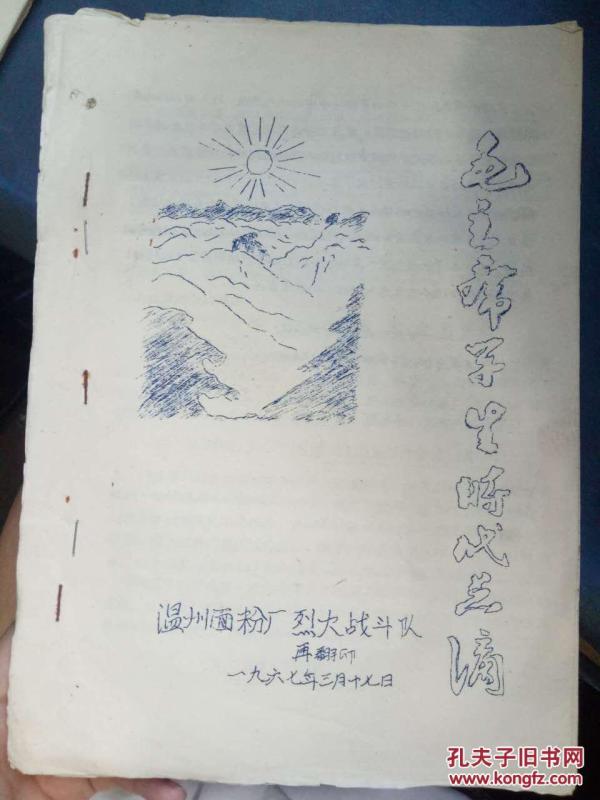 毛主席学生时代点滴
温州面粉厂烈火战斗队
再翻印
一九六七年三月十七日
孔夫子旧书网
www.kongfz.com